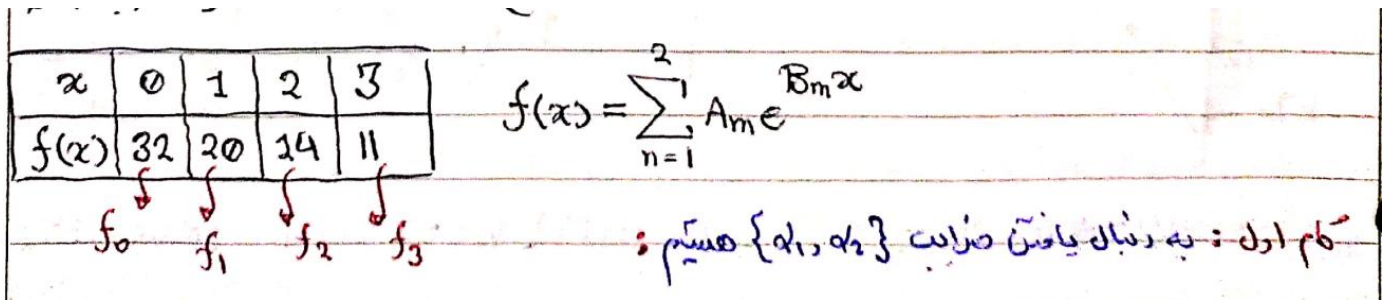 x 0 1 2 3
f(x) 32 20 14 11
f₀ f₁ f₂ f₃
f(x) = ∑_{n=1}^{2} A_m e^{B_m x}
گام اول : به دنبال یافتن ضرایب {α₁, α₂} هستیم :